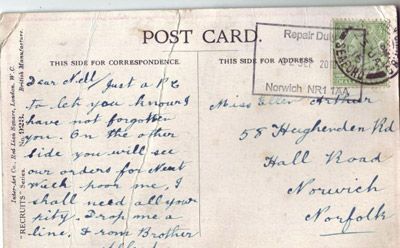 POST CARD.
THIS SIDE FOR CORRESPONDENCE.
THIS SIDE FOR ADDRESS
Inter-Art Co., Red Lion Square, London, W.C.
British Manufacture.
"RECRUITS" Series.
Repair Duty
SEP 201
Norwich NR1 1AA
SEAFORD
Dear Nell Just a P.C
to let you know I
have not forgotten
you. On the other
side you will see
our orders for Next
Week poor me, I
shall need all your
pity. Drop me a
line, from Brother
Miss Ellen Arthur
58 Hughenden Rd
Hall Road
Norwich
Norfolk